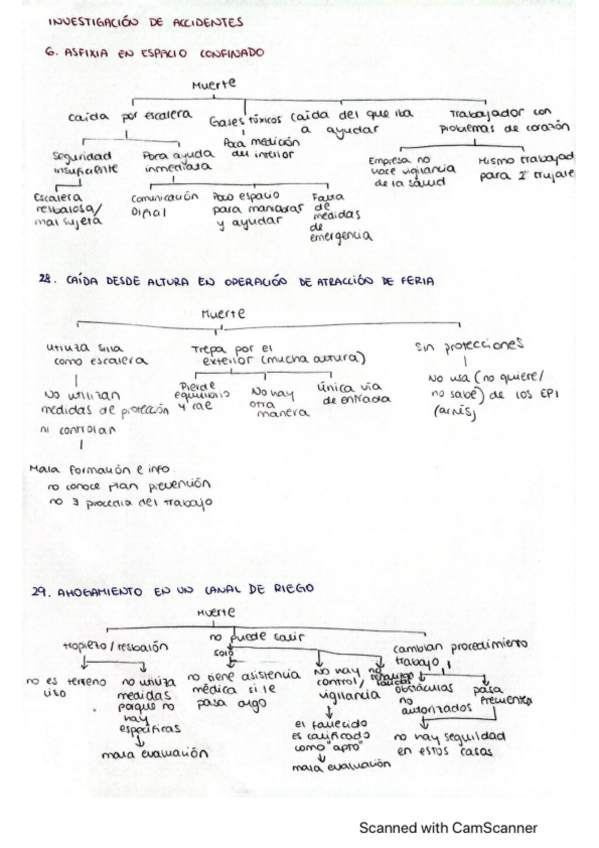 INVESTIGACIÓN DE ACCIDENTES
6. ASFIXIA EN ESPACIO CONFINADO
Muerte
caída por escalera
Gases tóxicos
caida del que iba
a ayudar
Trabajador con
problemas de corazón
Seguridad
insuficiente
Poca ayuda
inmediata
Poca medición
del interior
Empresa no
hace vigilancia
de la salud
Mismo trabajad
para 2
Escalera
resbalosa/
mal sujeta
Comunicación
Difícil
Poco espacio
para maniobrar
y ayudar
Falta
de
medidas
de
emergencia
28. CAÍDA DESDE ALTURA EN OPERACIÓN DE ATRACCIÓN DE FERIA
Muerte
utiliza silla
como escalera
Trepa por el
exterior (mucha altura)
sin protecciones
No utilizan
medidas de protección
ni controlan
Pierde
equilibrio
y cae
No hay
otra
manera
Única vía
de entrada
No usa (no quiere/
no sabe) de los EPI
(arnés)
Mala formación e info
no conoce plan prevención
no 3 procedía del trabajo
29. AHOGAMIENTO EN UN CANAL DE RIEGO
Muerte
tropiezo / resbalón
no puede salir
solo
cambian procedimiento
trabajo
no es terreno
liso
no utiliza
medidas
porque no
hay
específicas
mala evaluación
no tiene asistencia
médica si le
pasa algo
No hay
control/
vigilancia
el fallecido
es calificado
como "apto"
mala evaluación
no
obstáculos
no
autorizados
pasa
no hay seguridad
en estos casos
Scanned with CamScanner